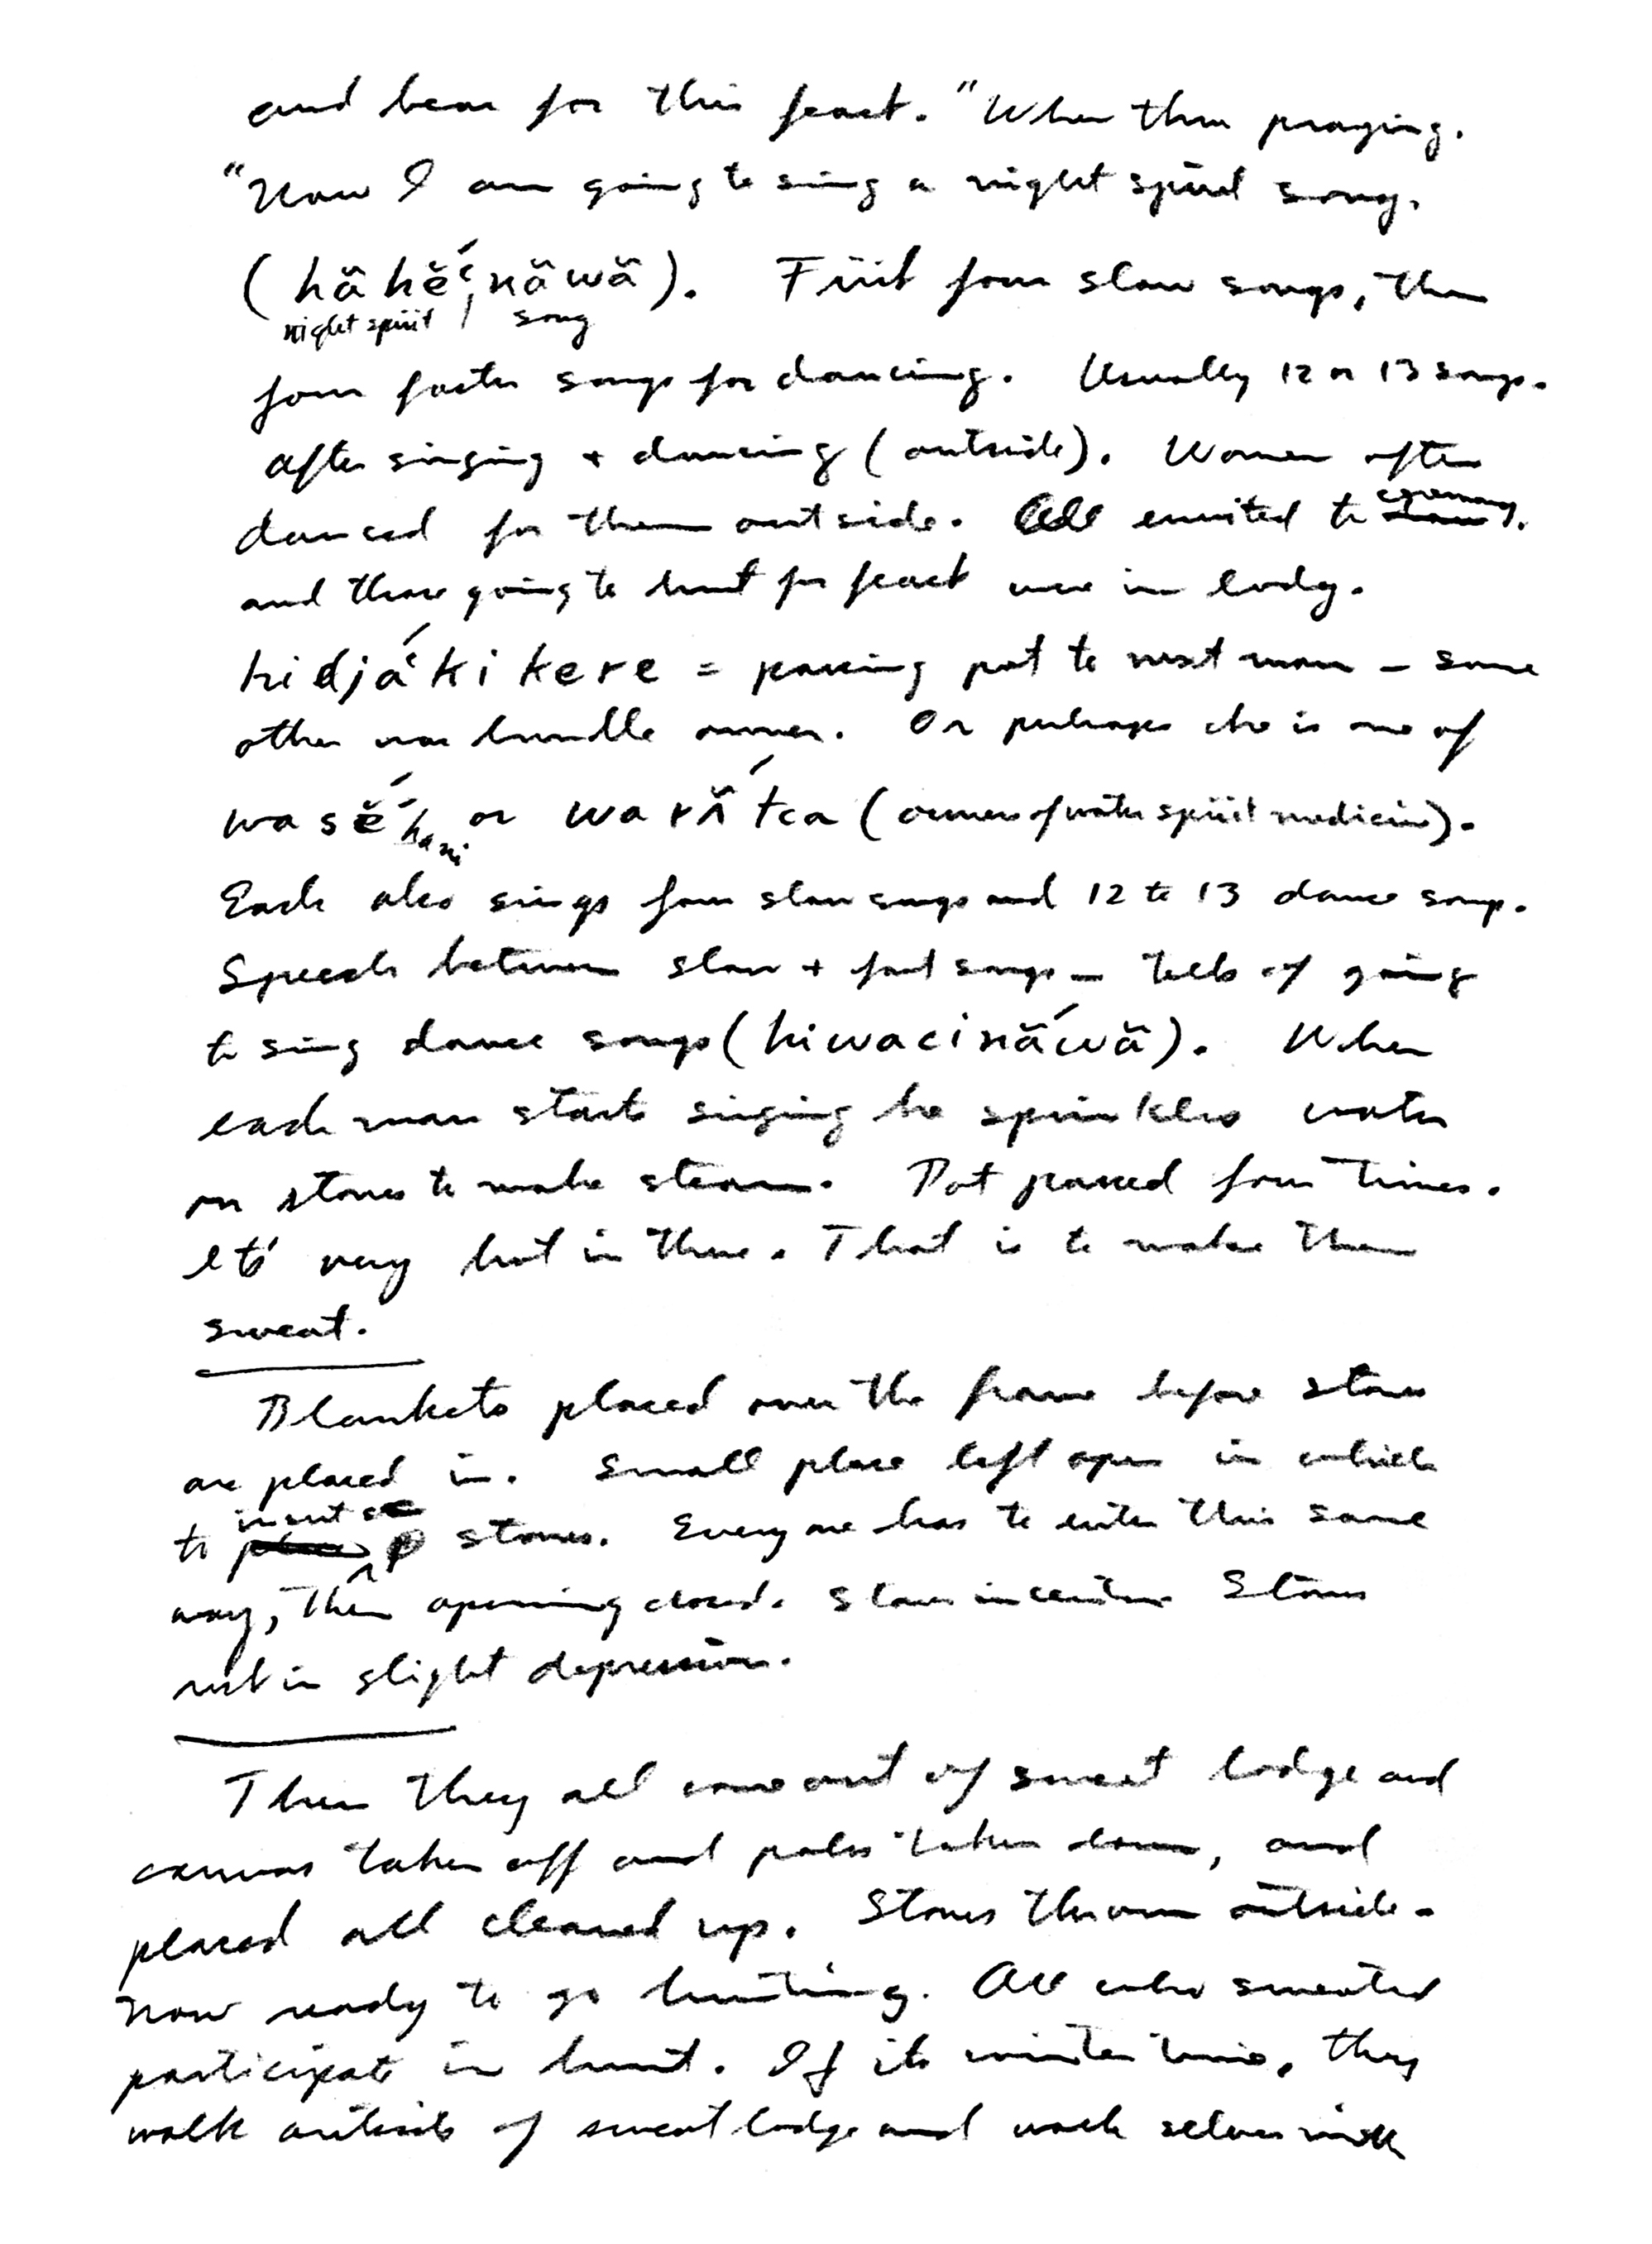 and bear for this feast." When thru praying.
"Now I am going to sing a night spirit song.
(hähĕ́‘, näwä). First four slow songs, then
night spirit / song
four faster songs for dancing. Usually 12 or 13 songs.
after singing + dancing (outside). Women often
danced for them outside. All envited to ceremony.
and those going to hunt for feast were in lodg.
hidjá‘kikere = passing pot to next man – some
other war bundle owner. Or perhaps who is one of
wasĕ́hani or warä́tca (owners of water spirit medicine).
Each also sings four slow songs and 12 to 13 dance songs.
Speech between slow + fast songs – tells of going
to sing dance songs (hiwacinä́wä). When
each man starts singing he sprinkles water
on stones to make steam. Pot passed four times.
Its' very hot in there. That is to make them
sweat.
Blankets placed over the frame before stones
are placed in. Small place left open in which
to insert stones. Every one has to enter this same
way, then opening closed. in center Stones
rest in slight depression.
Then they all come out of sweat lodge and
canvas taken off and poles taken down, and
placed all cleaned up. Stones thrown outside –
now ready to go hunting. All who sweated
participate in hunt. If its winter time, they
walk outside of sweat lodge and wash selves with